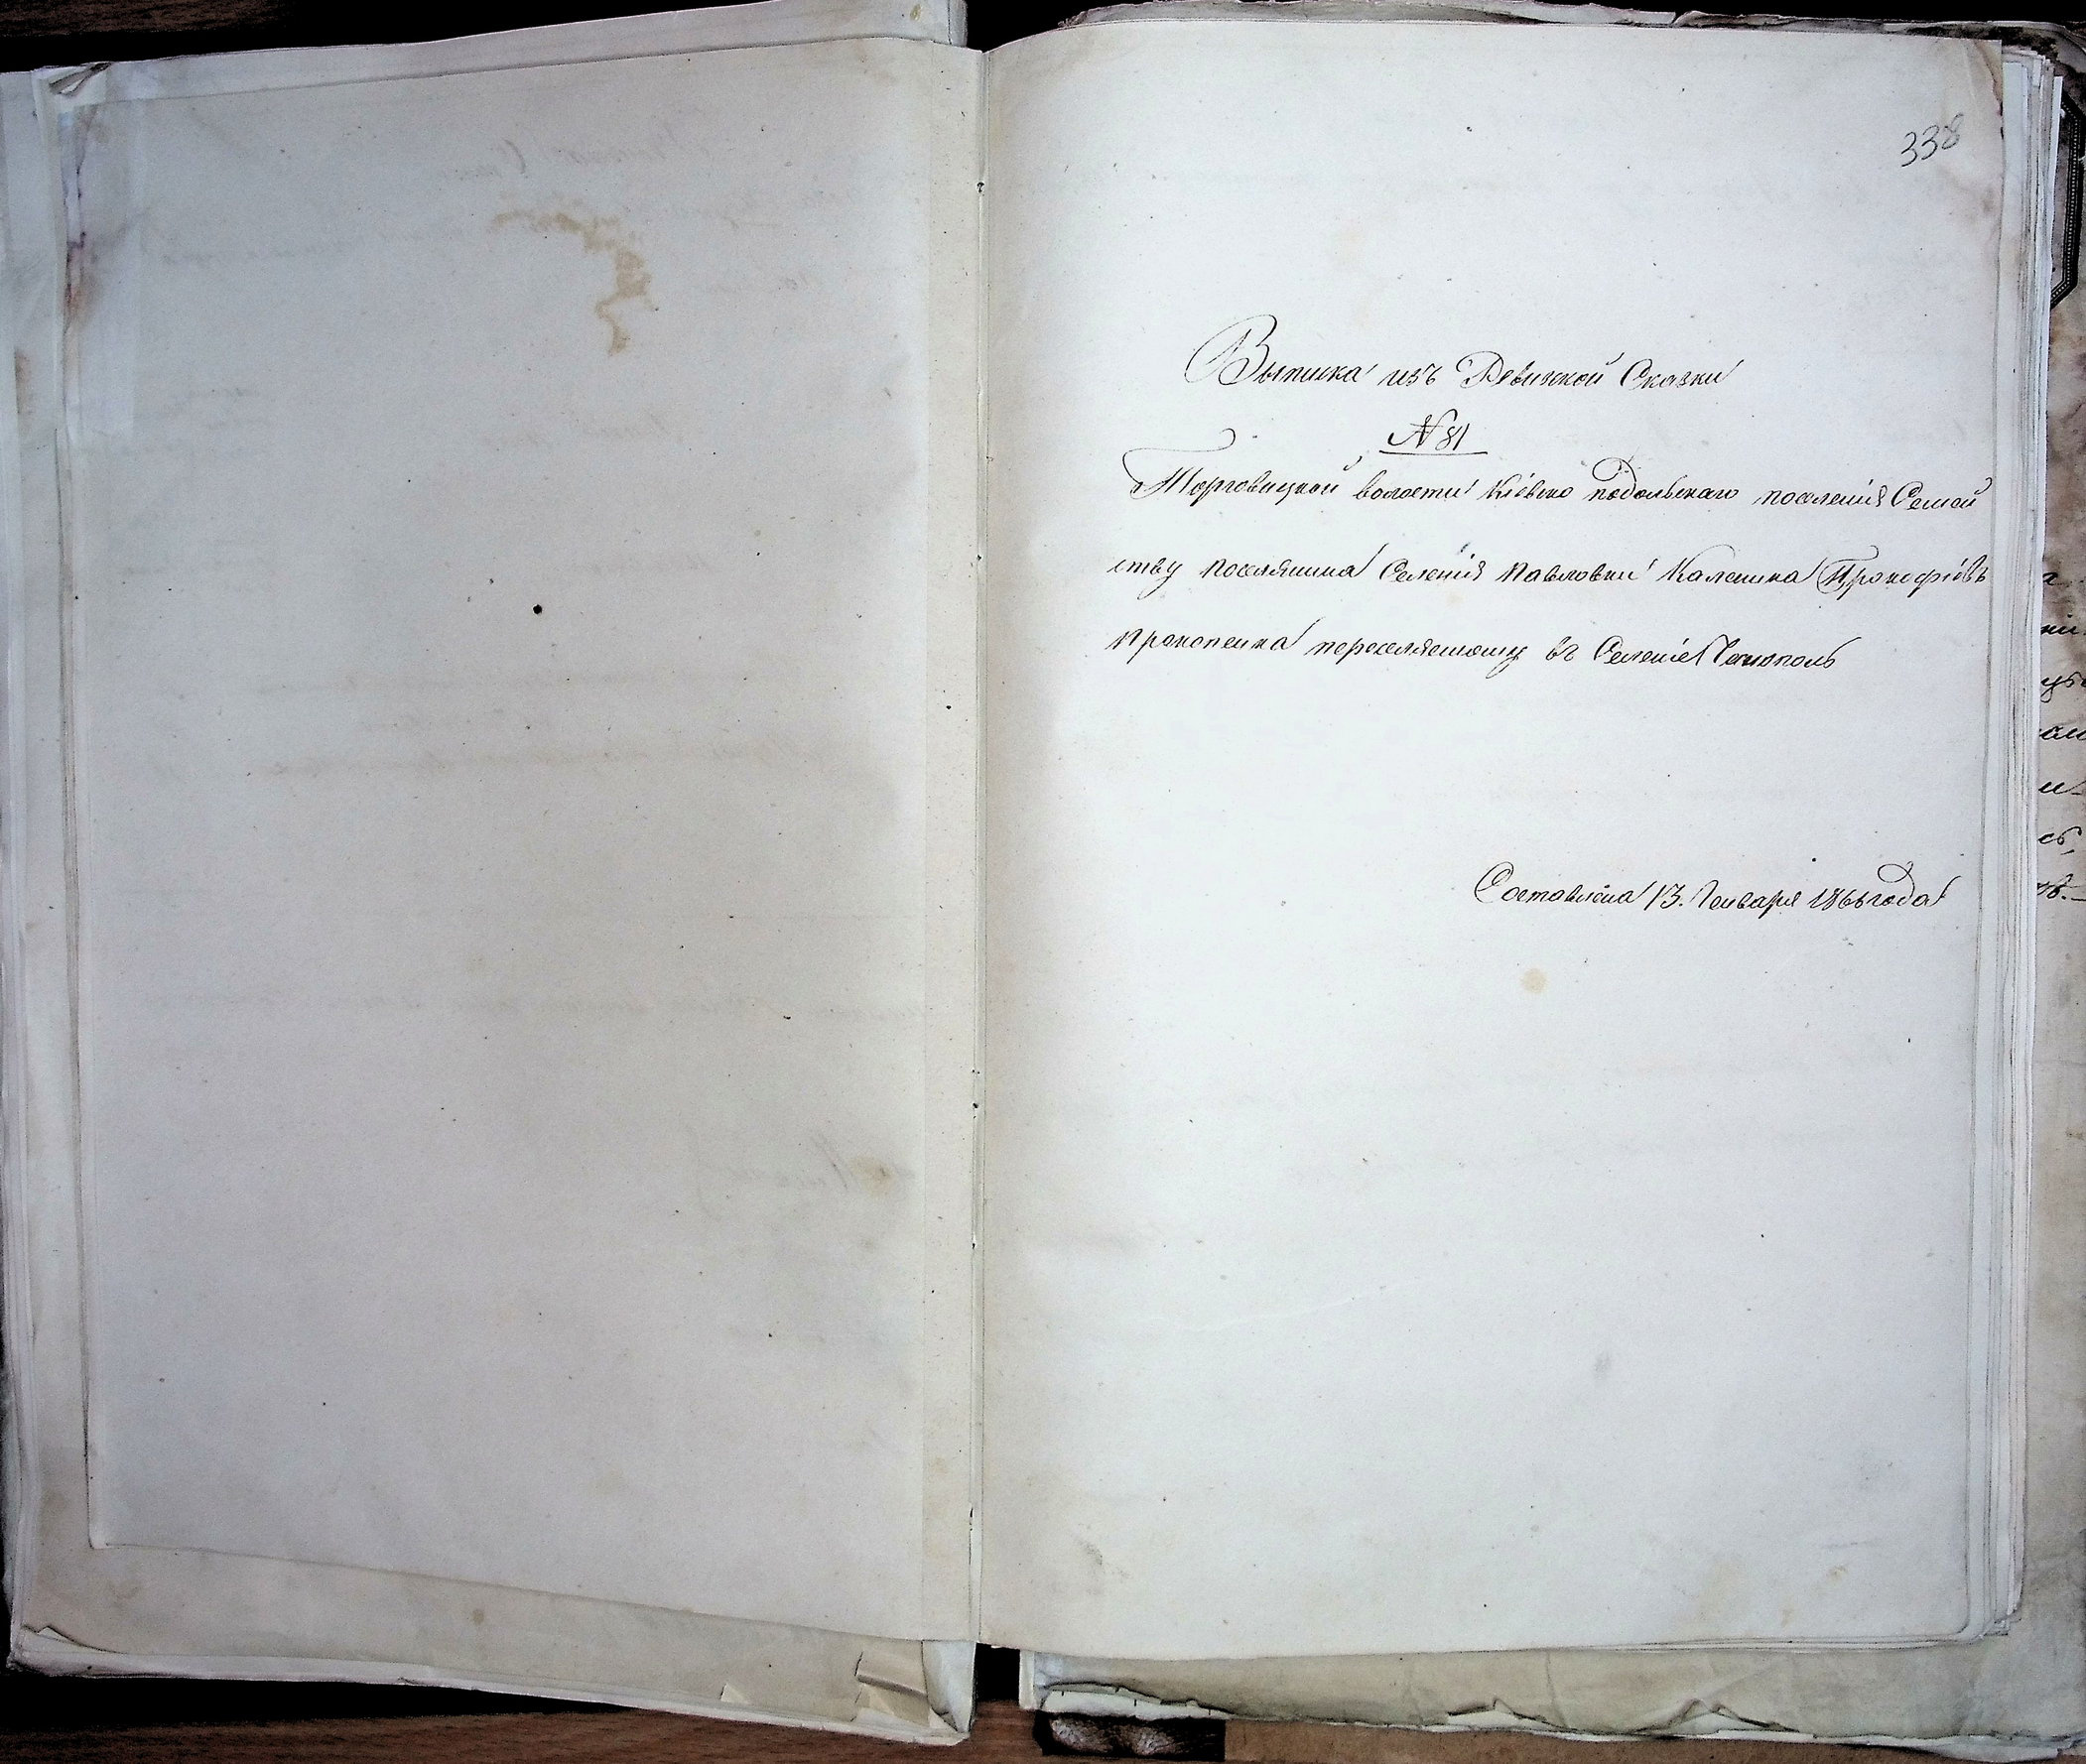 338
Выписка изъ Ревизкой Сказки
№ 81
Торговицкой волости Кіевко подольскаго поселенія Семей
ству поселянина Селенія Павловки Каленика Прокофіевъ
Прокопенка переселяемому въ Селеніе
Составлена 13. Генваря 1866 года